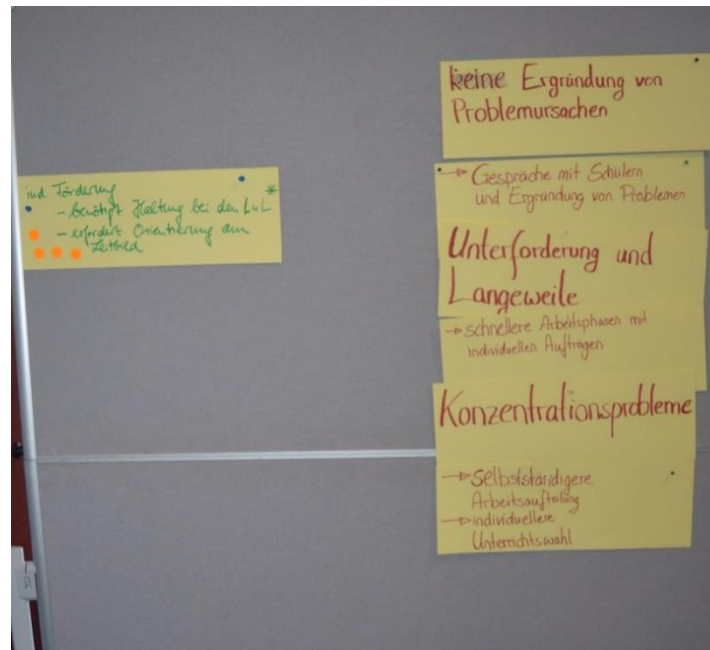 ind. Förderung *
- benötigt Haltung bei den LuL
- erfordert Orientierung am
Leitbild
keine Ergründung von
Problemursachen
→ Gespräche mit Schülern
und Ergründung von Problemen
Unterforderung und
Langeweile
→ schnellere Arbeitsphasen mit
individuellen Aufträgen
Konzentrationsprobleme
→ selbstständigere
Arbeitsaufteilung
→ individuellere
Unterrichtswahl